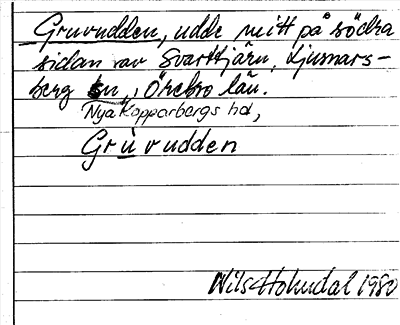 Gruvudden, udde mitt på södra
sidan av Svarttjärn, Ljusnars-
berg sn, Örebro län.
Nya Kopparbergs hd,
Gruvudden
Nils Holmdal 1980